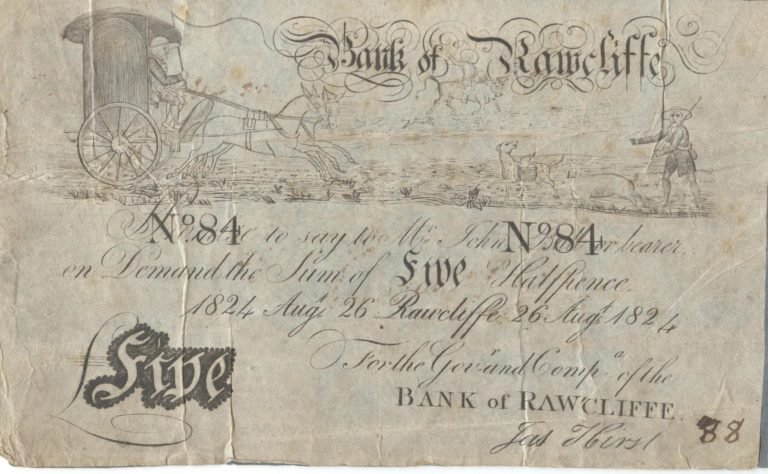 Bank of Rawcliffe
No 84 to say to Mr. John No 84 or bearer
on Demand the Sum of Five Halfpence
1824 Augt 26 Rawcliffe 26 Augt 1824
For the Govr and Compa of the
Five
BANK of RAWCLIFFE.
Jas Hirst 38